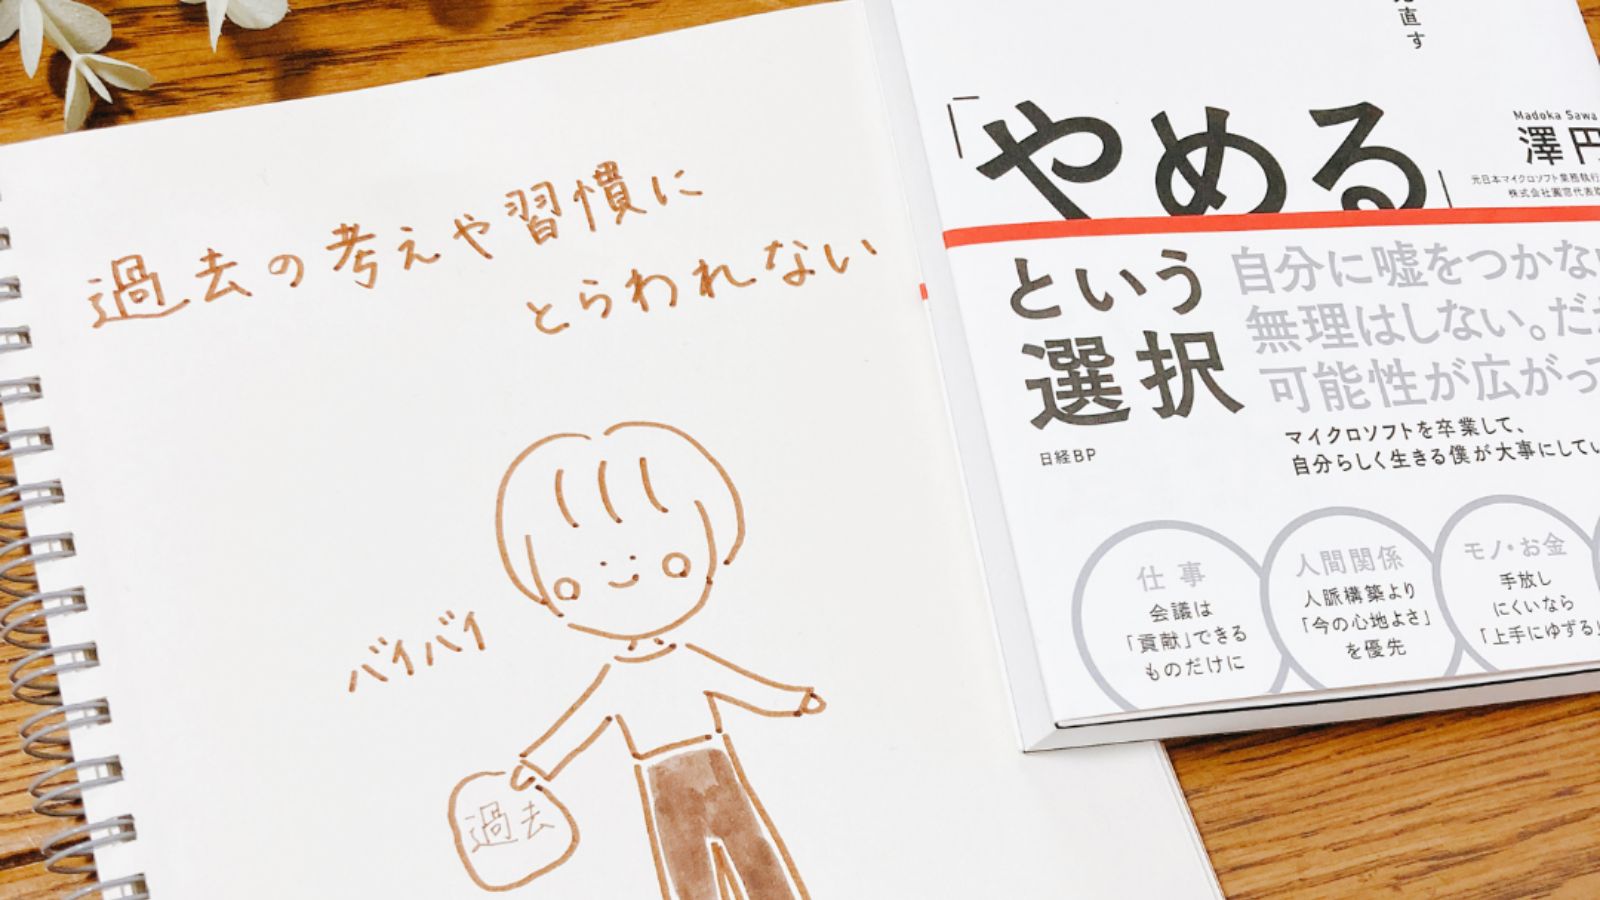 過去の考えや習慣に
とらわれない
バイバイ
過去
直す
「やめる」
という
選択
Madoka Sawa
澤円
元日本マイクロソフト業務執行
株式会社圓窓代表取
自分に嘘をつかない
無理はしない。だか
可能性が広がっ
マイクロソフトを卒業して、
自分らしく生きる僕が大事にしてい
日経BP
仕事
会議は
「貢献」できる
ものだけに
人間関係
人脈構築より
「今の心地よさ」
を優先
モノ・お金
手放し
にくいなら
「上手にゆずる」